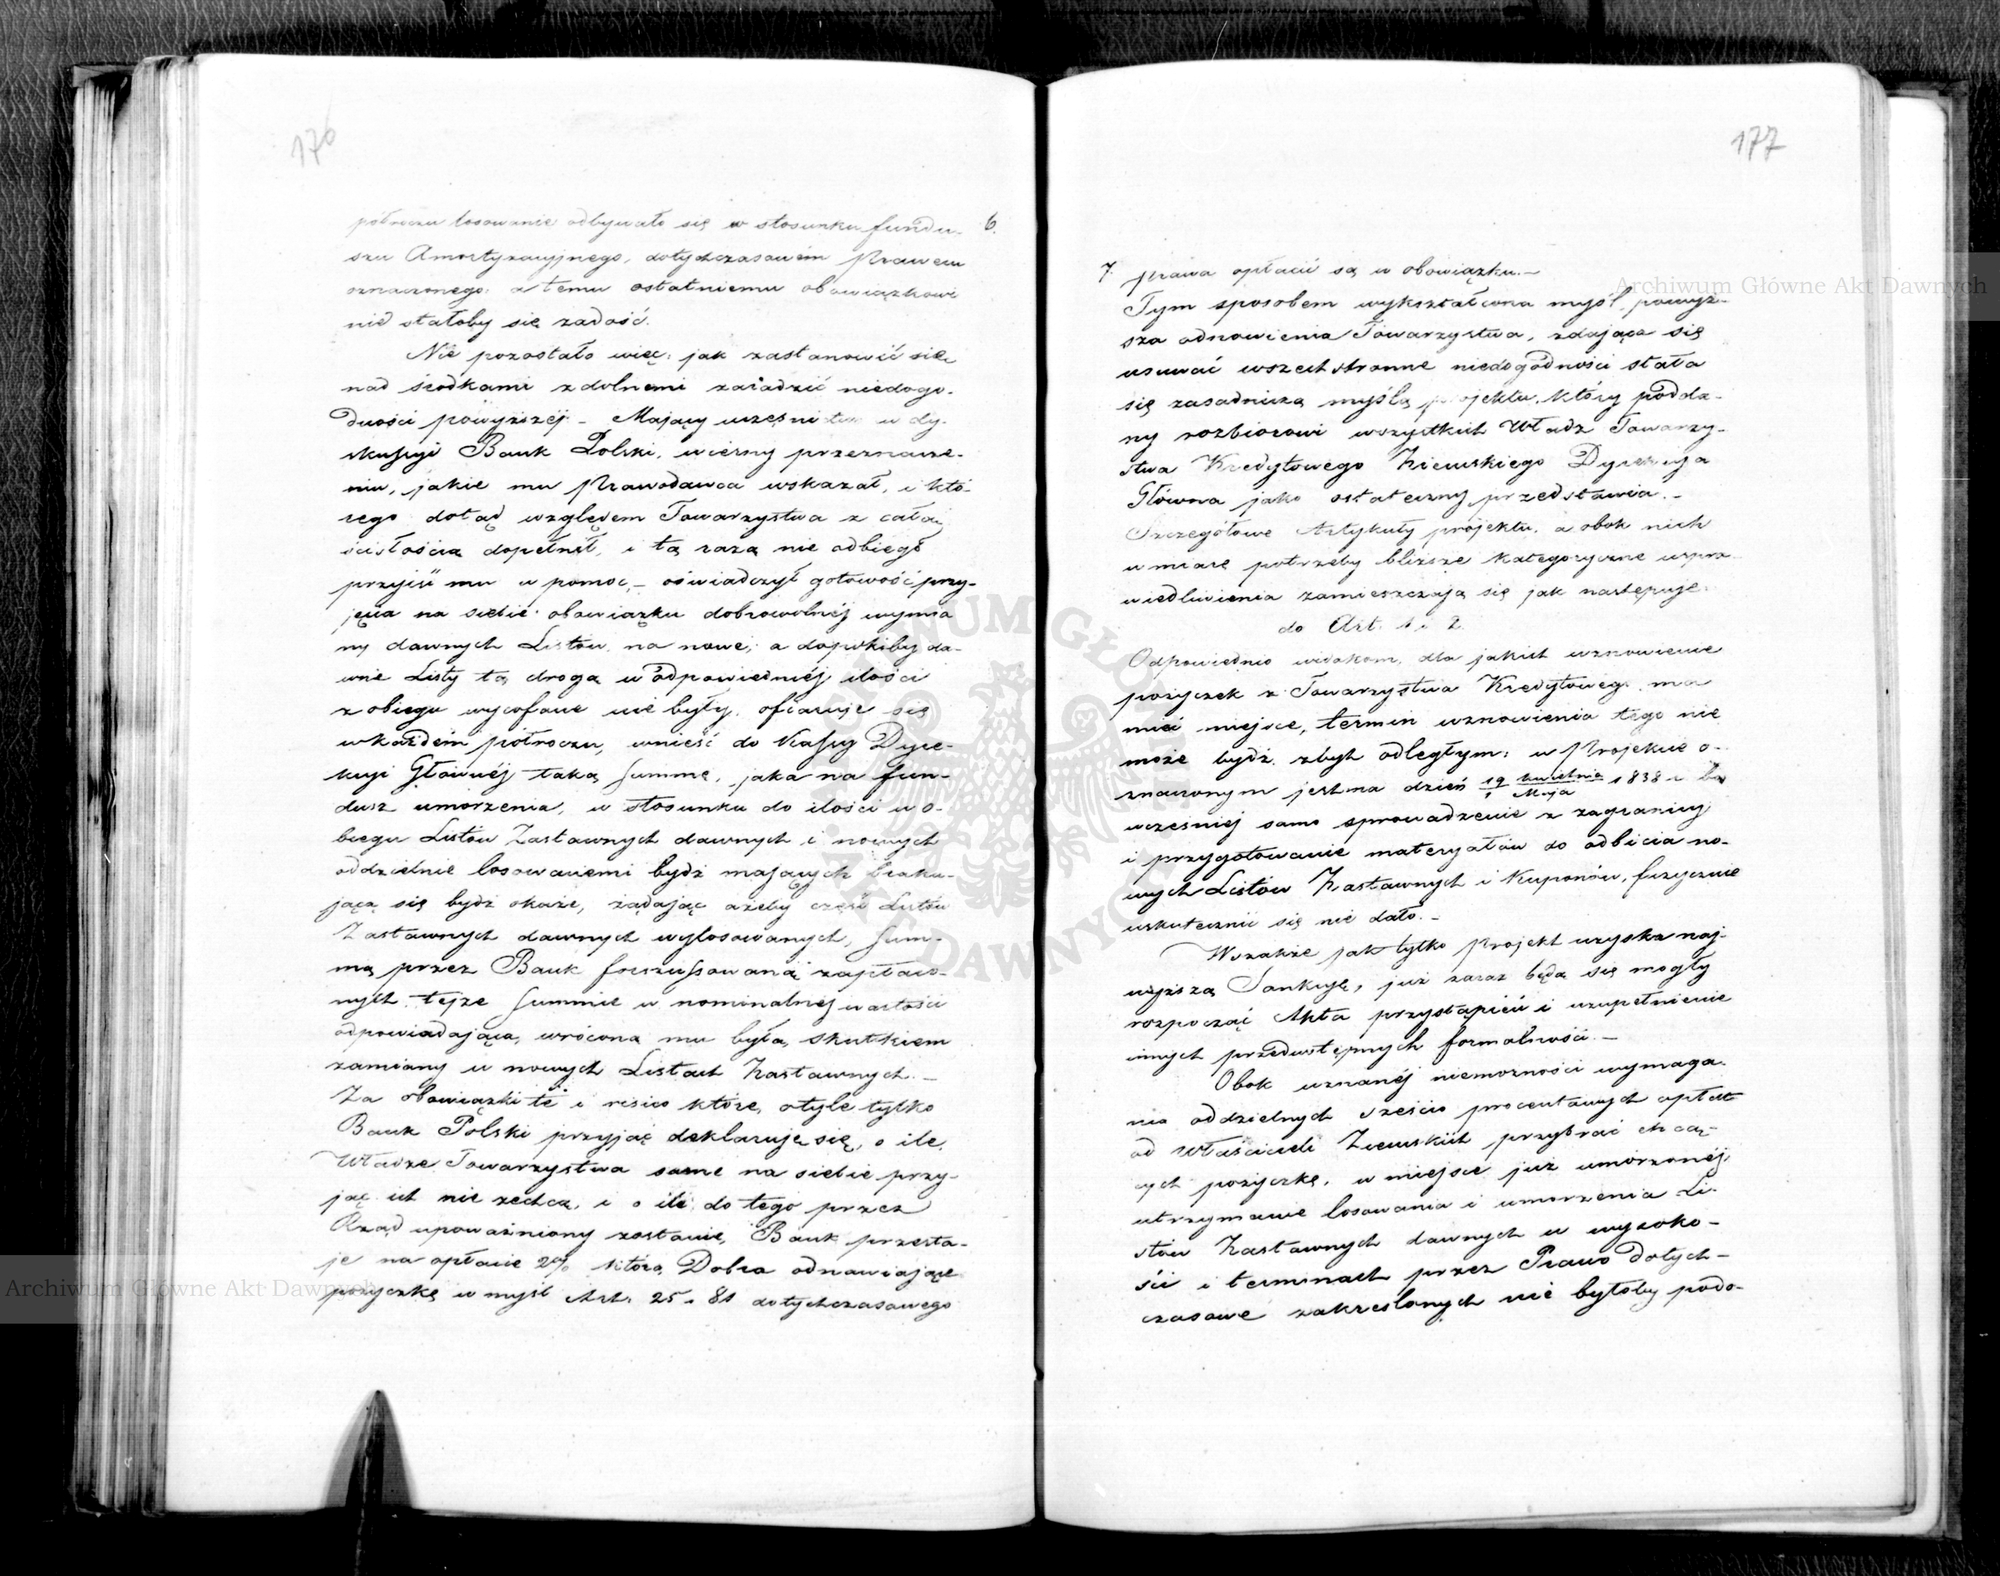 176
6.
półroczu losowanie odbywało się w stosunku fundu-
szu Amortyzacyjnego, dotychczasowém Prawem
oznaczonego: a temu ostatniemu obowiązkowi
nie stałoby się zadość.
Nie pozostało więc, jak zastanowić się
nad środkami zdolnemi zaradzić niedogo-
dności powyższéj. – Mający uczęśnictwo w dy-
skussyi Bank Polski, wierny przeznacze-
niu, jakie mu Prawodawca wskazał, i któ-
rego dotąd względem Towarzystwa z całą
ścisłością dopełnił, i tą razą nie odbiegł
przyjść mu w pomoc, – oświadczył gotowość przy-
jęcia na siebie obowiązku dobrowolnéj wymia
ny dawnych Listów na nowe; a dopókiby da-
wne Listy tą drogą w odpowiedniéj ilości
z obiegu wycofane nie były, ofiaruje się
w każdém półroczu, wnieść do Kassy Dyre-
kcyi Głównéj taką summę, jaka na fun-
dusz umorzenia, w stosunku do ilości w o-
biegu Listów Zastawnych dawnych i nowych
oddzielnie losowaniemi bydź mających braku-
jącą się bydź okaże, żądając ażeby część Listów
Zastawnych dawnych wylosowanych, sum-
mą przez Bank forszussowaną zapłaco-
nych, tejże summie w nominalnéj wartości
odpowiadająca, wróconą mu była, skutkiem
zamiany w nowych Listach Zastawnych. –
Za obowiązki te i risico które, otyle tylko
Bank Polski przyjąć deklaruje się, o ile
Władze Towarzystwa same na siebie przy-
jąć ich nie zechcą, i o ile do tego przez
Rząd upoważniony zostanie, Bank przesta-
je na opłacie 2% którą Dobra odnawiające
pożyczkę w myśl Art. 25 i 81 dotychczasowego
177
7. prawa opłacić są w obowiązku. –
Tym sposobem wykształcona myśl powyż-
sza odnowienia Towarzystwa, zdająca się
usuwać wszechstronne niedogodności stała
się zasadniczą myślą projektu, który podda-
ny rozbiorowi wszystkich Władz Towarzy-
stwa Kredytowego Ziemskiego Dyrekcya
Główna jako ostateczny przedstawia. –
Szczegółowe Artykuły projektu, a obok nich
w miarę potrzeby bliższe kategoryczne uspra-
wiedliwienia zamieszczają się jak następuje:
do Art. 1 i 2.
Odpowiednio widokom, dla jakich wznowienie
pożyczek z Towarzystwa Kredytowego ma
mieć miejsce, termin wznowienia tego nie
może bydź zbyt odległym: w Projekcie o-
znaczonym jest na dzień 19 kwietnia / 1 Maja 1838 r. Za
wcześniéj samo sprowadzenie z zagranicy
i przygotowanie materyałów do odbicia no-
wych Listów Zastawnych i Kuponów, fizycznie
uskutecznić się nie dało. –
Wszakże jak tylko Projekt uzyska naj-
wyższą Sankcyę, już zaraz będą się mogły
rozpocząć Akta przystąpień i uzupełnienie
innych przedwstępnych formalności. –
Obok uznanéj niemożności wymaga-
nia oddzielnych sześcio procentowych opłat
od Właścicieli Ziemskich przybrać chcą-
cych pożyczkę, w miejsce już umorzonéj,
utrzymanie losowania i umorzenia Li-
stów Zastawnych dawnych w wysoko-
ści i terminach przez Prawo dotych-
czasowe zakreślonych nie byłoby podo-
Archiwum Główne Akt Dawnych
Archiwum Główne Akt Dawnych